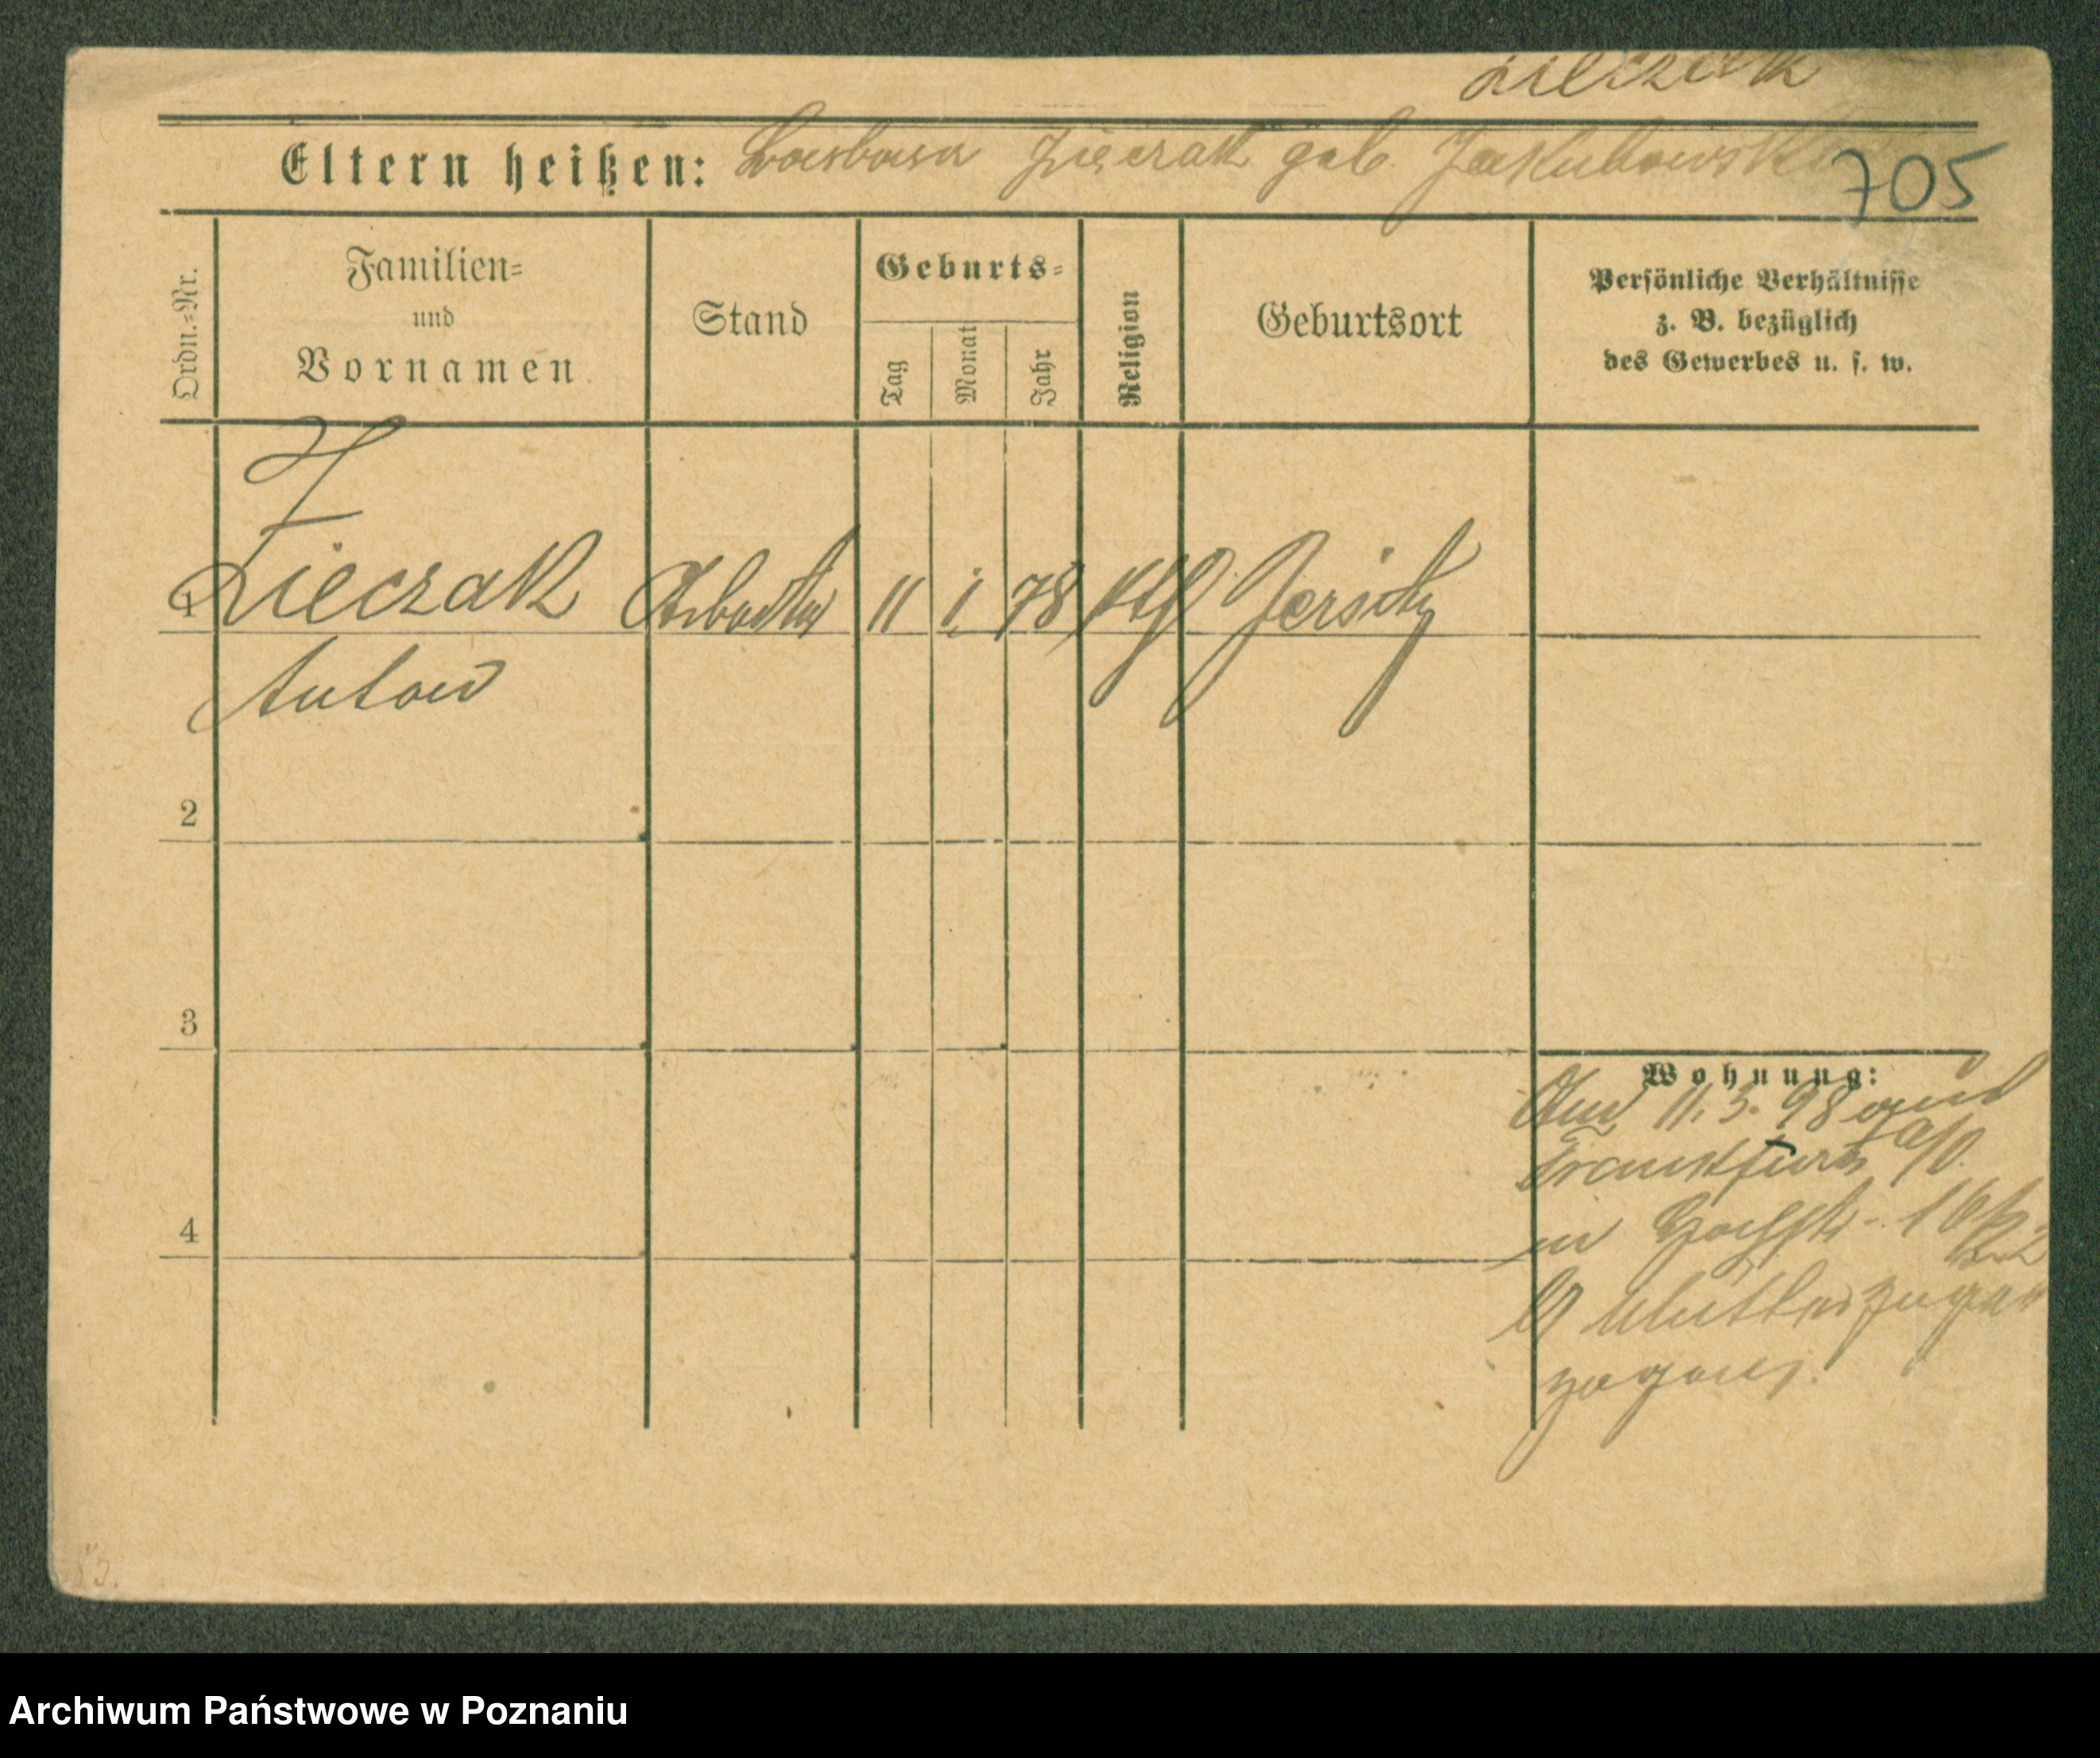 Eltern heißen: Barbara Zieczak geb. Jakubowska
705
Ordn.-Nr.
Familien-
und
Vornamen
Stand
Geburts-
Tag
Monat
Jahr
Religion
Geburtsort
Persönliche Verhältnisse
z. B. bezüglich
des Gewerbes u. s. w.
1
Zieczak Arbeiter 11 1. 78 Kth Jersitz
Anton
2
3
4
Wohnung:
Am 11. 3. 98 aus
Frankfurt a/O.
in 16
Mutter zuge
zogen.
Archiwum Państwowe w Poznaniu